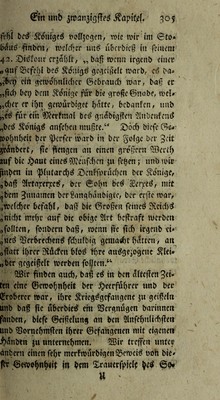 Ein und zwanzigstes Kapitel. 305
fehl des Königes vollzogen, wie wir im Sto-
bäus finden, welcher uns überdieß in seinem
42. Diskour erzählt, „daß wenn irgend einer
„auf Befehl des Königs gegeißelt ward, es das
„bey ein gewöhnlicher Gebrauch war, daß er
„sich bey dem Könige für die große Gnade, wel-
„cher er ihn gewürdiget hätte, bedanken, und
„es für ein Merkmal des gnädigsten Andenkens
„des Königs ansehen mußte.“ Doch diese Ge-
wohnheit der Perser ward in der Folge der Zeit
geändert, sie fiengen an einen größern Werth
auf die Haut eines Menschen zu setzen; und wir
finden in Plutarchs Denksprüchen der Könige,
„daß Artaxerxes, der Sohn des Xerxes, mit
„dem Zunamen der Langhändigte, der erste war,
„welcher befahl, daß die Großen seines Reichs
„nicht mehr auf die obige Art bestraft werden
„sollten, sondern daß, wenn sie sich irgend ei-
„nes Verbrechens schuldig gemacht hätten, an
„statt ihrer Rücken blos ihre ausgezogene Klei-
„der gegeißelt werden sollten.“
Wir finden auch, daß es in den ältesten Zei-
ten eine Gewohnheit der Heerführer und der
Eroberer war, ihre Kriegsgefangene zu geißeln
und daß sie überdies ein Vergnügen darinnen
fanden, diese Geißelung an den Ansehnlichsten
und Vornehmsten ihrer Gefangenen mit eigenen
Händen zu unternehmen. Wir treffen unter
andern einen sehr merkwürdigen Beweis von die-
ser Gewohnheit in dem Trauerspiele des So-
U